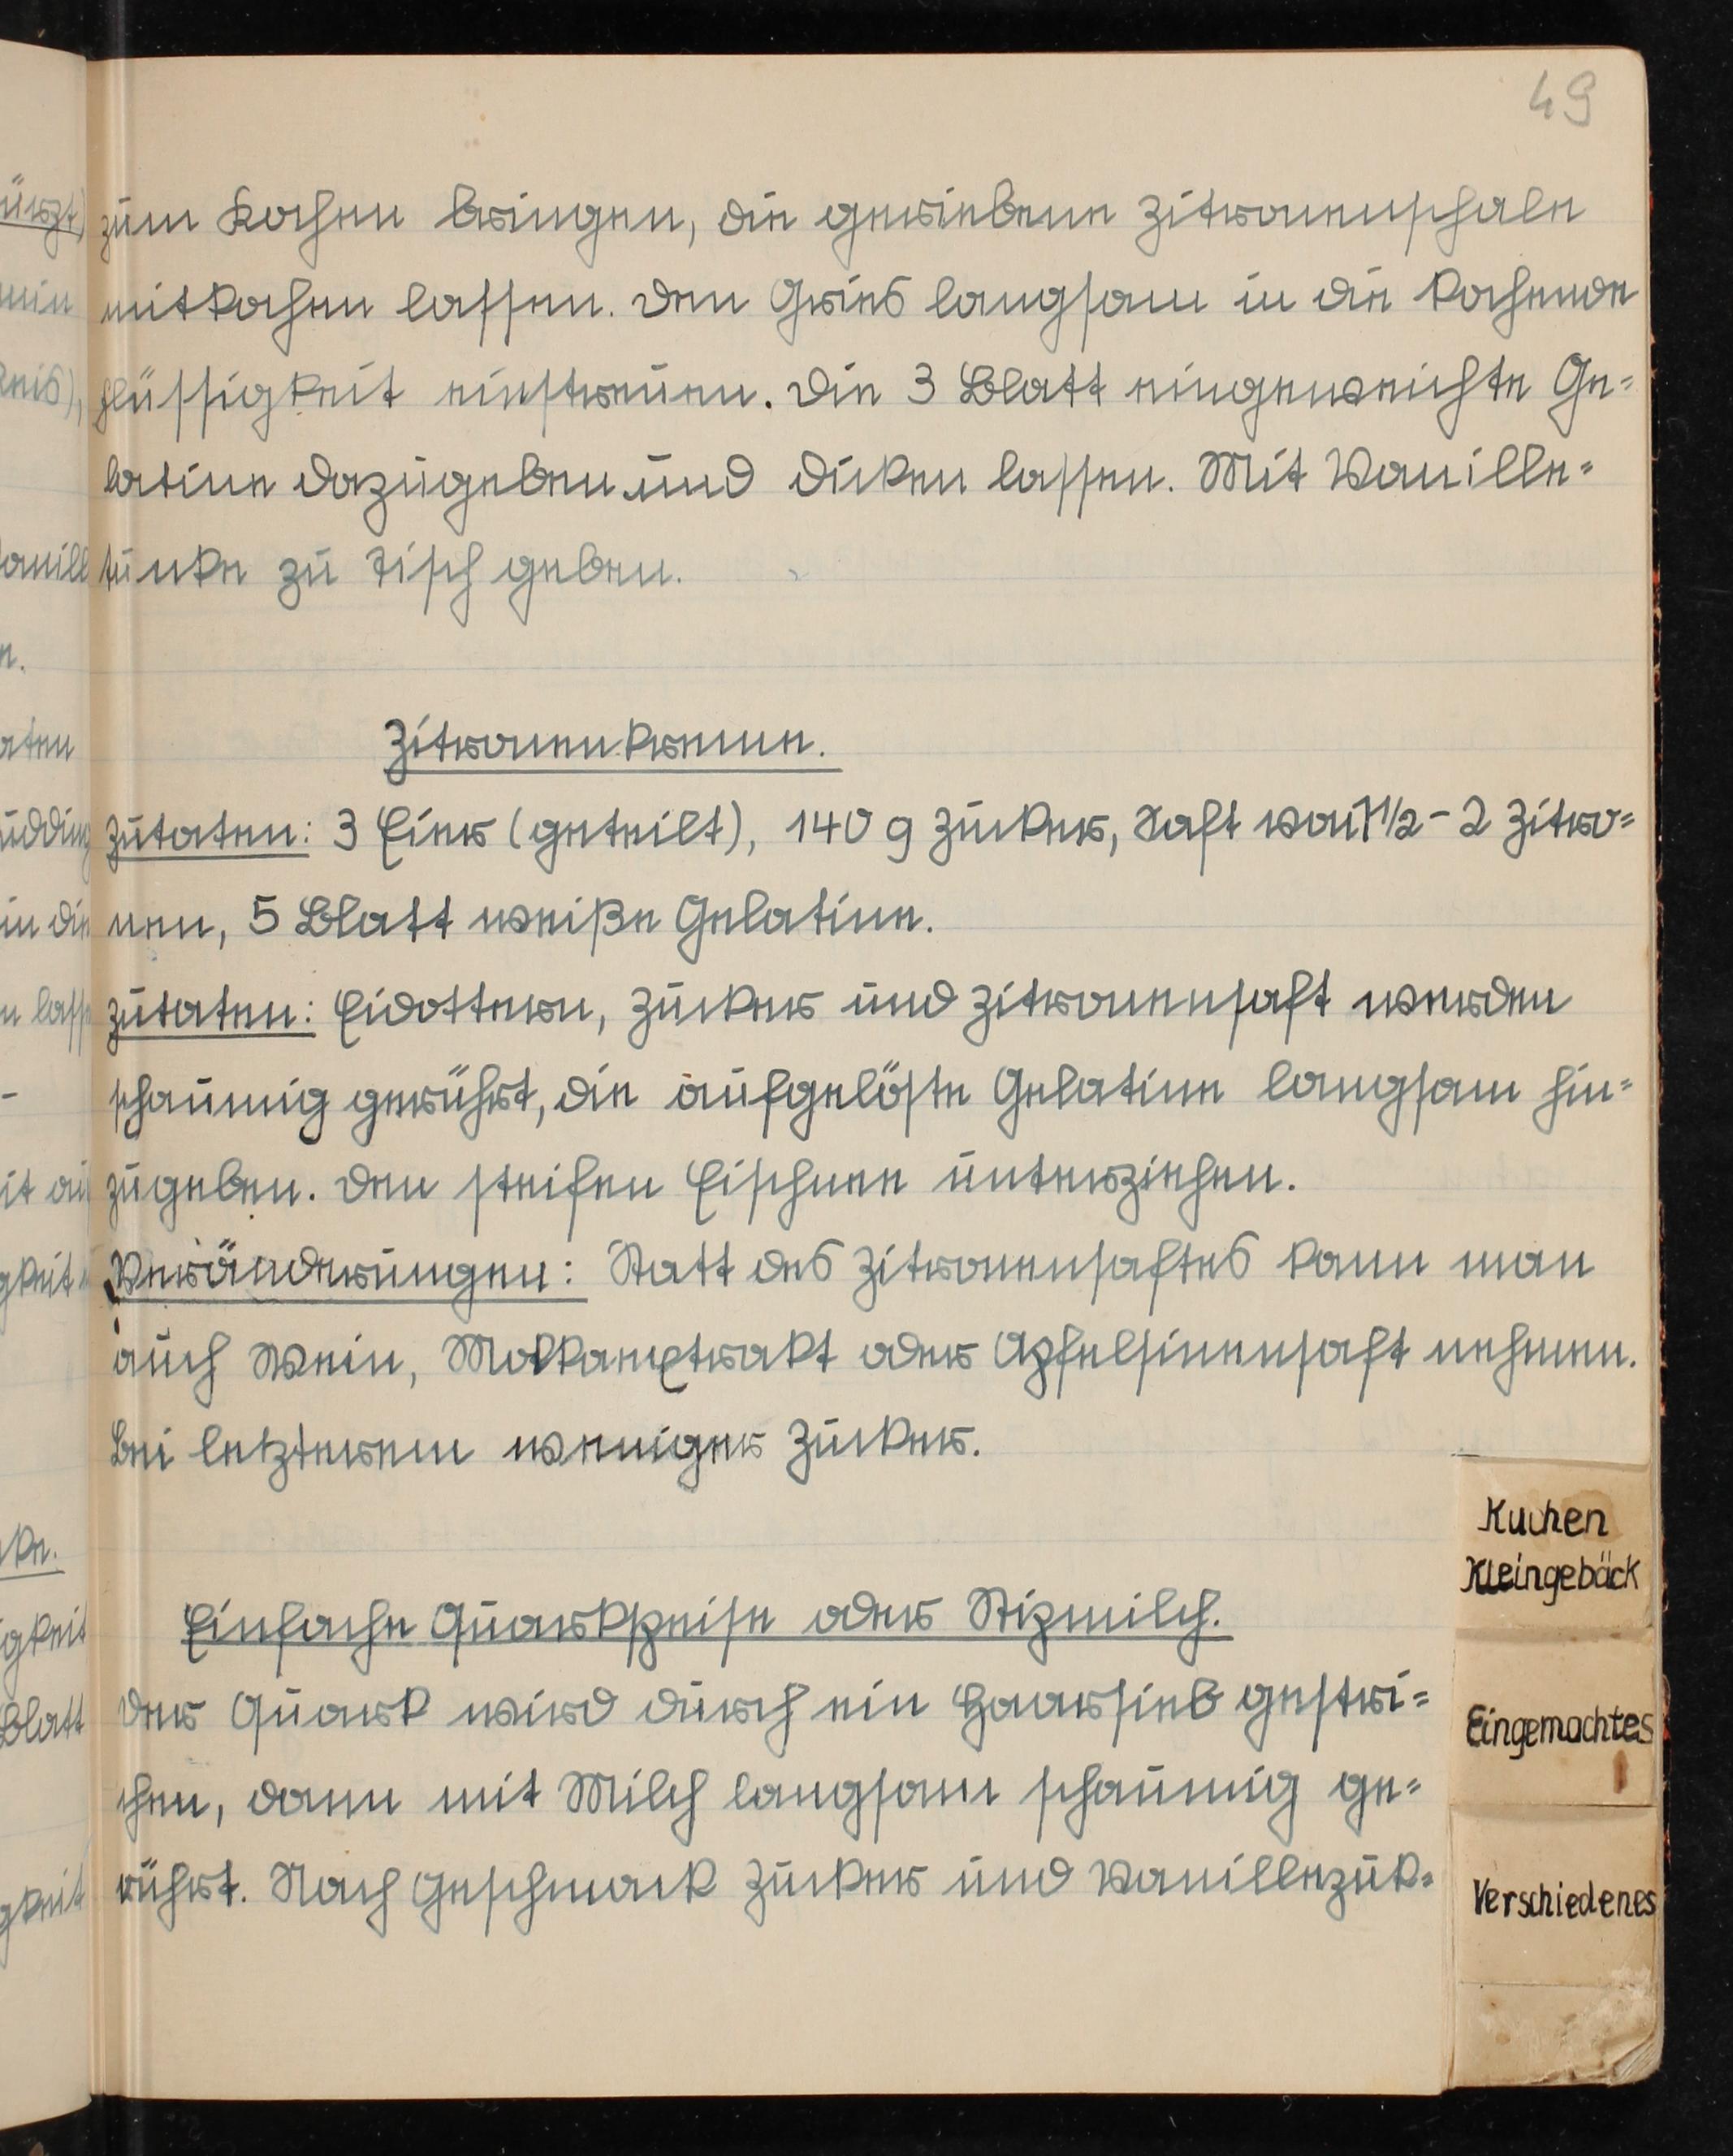 49
zum Kochen bringen, die geriebene Zitronenschale
mitkochen lassen. Den Gries langsam in die kochende
Flüssigkeit einstreuen. Die 3 Blatt eingeweichte Ge=
latine dazugeben und dicken lassen. Mit Vanille=
tunke zu Tisch geben.
Zitronenkreme.
Zutaten: 3 Eier (geteilt), 140 g Zucker, Saft von 1 1/2 - 2 Zitro=
nen, 5 Blatt weiße Gelatine.
Zutaten: Eidottern, Zucker und Zitronensaft werden
schaumig gerührt, die aufgelöste Gelatine langsam hin=
zugeben. Den steifen Eischnee unterziehen.
Veränderungen: Statt des Zitronensaftes kann man
auch Wein, Mokkaextrakt oder Apfelsinensaft nehmen.
Bei letzterem weniger Zucker.
Einfache Quarkspeise oder Stipmilch.
Der Quark wird durch ein Haarsieb gestri=
chen, dann mit Milch langsam schaumig ge=
rührt. Nach Geschmack Zucker und Vanillezuk=
Kuchen
Kleingebäck
Eingemachtes
Verschiedenes